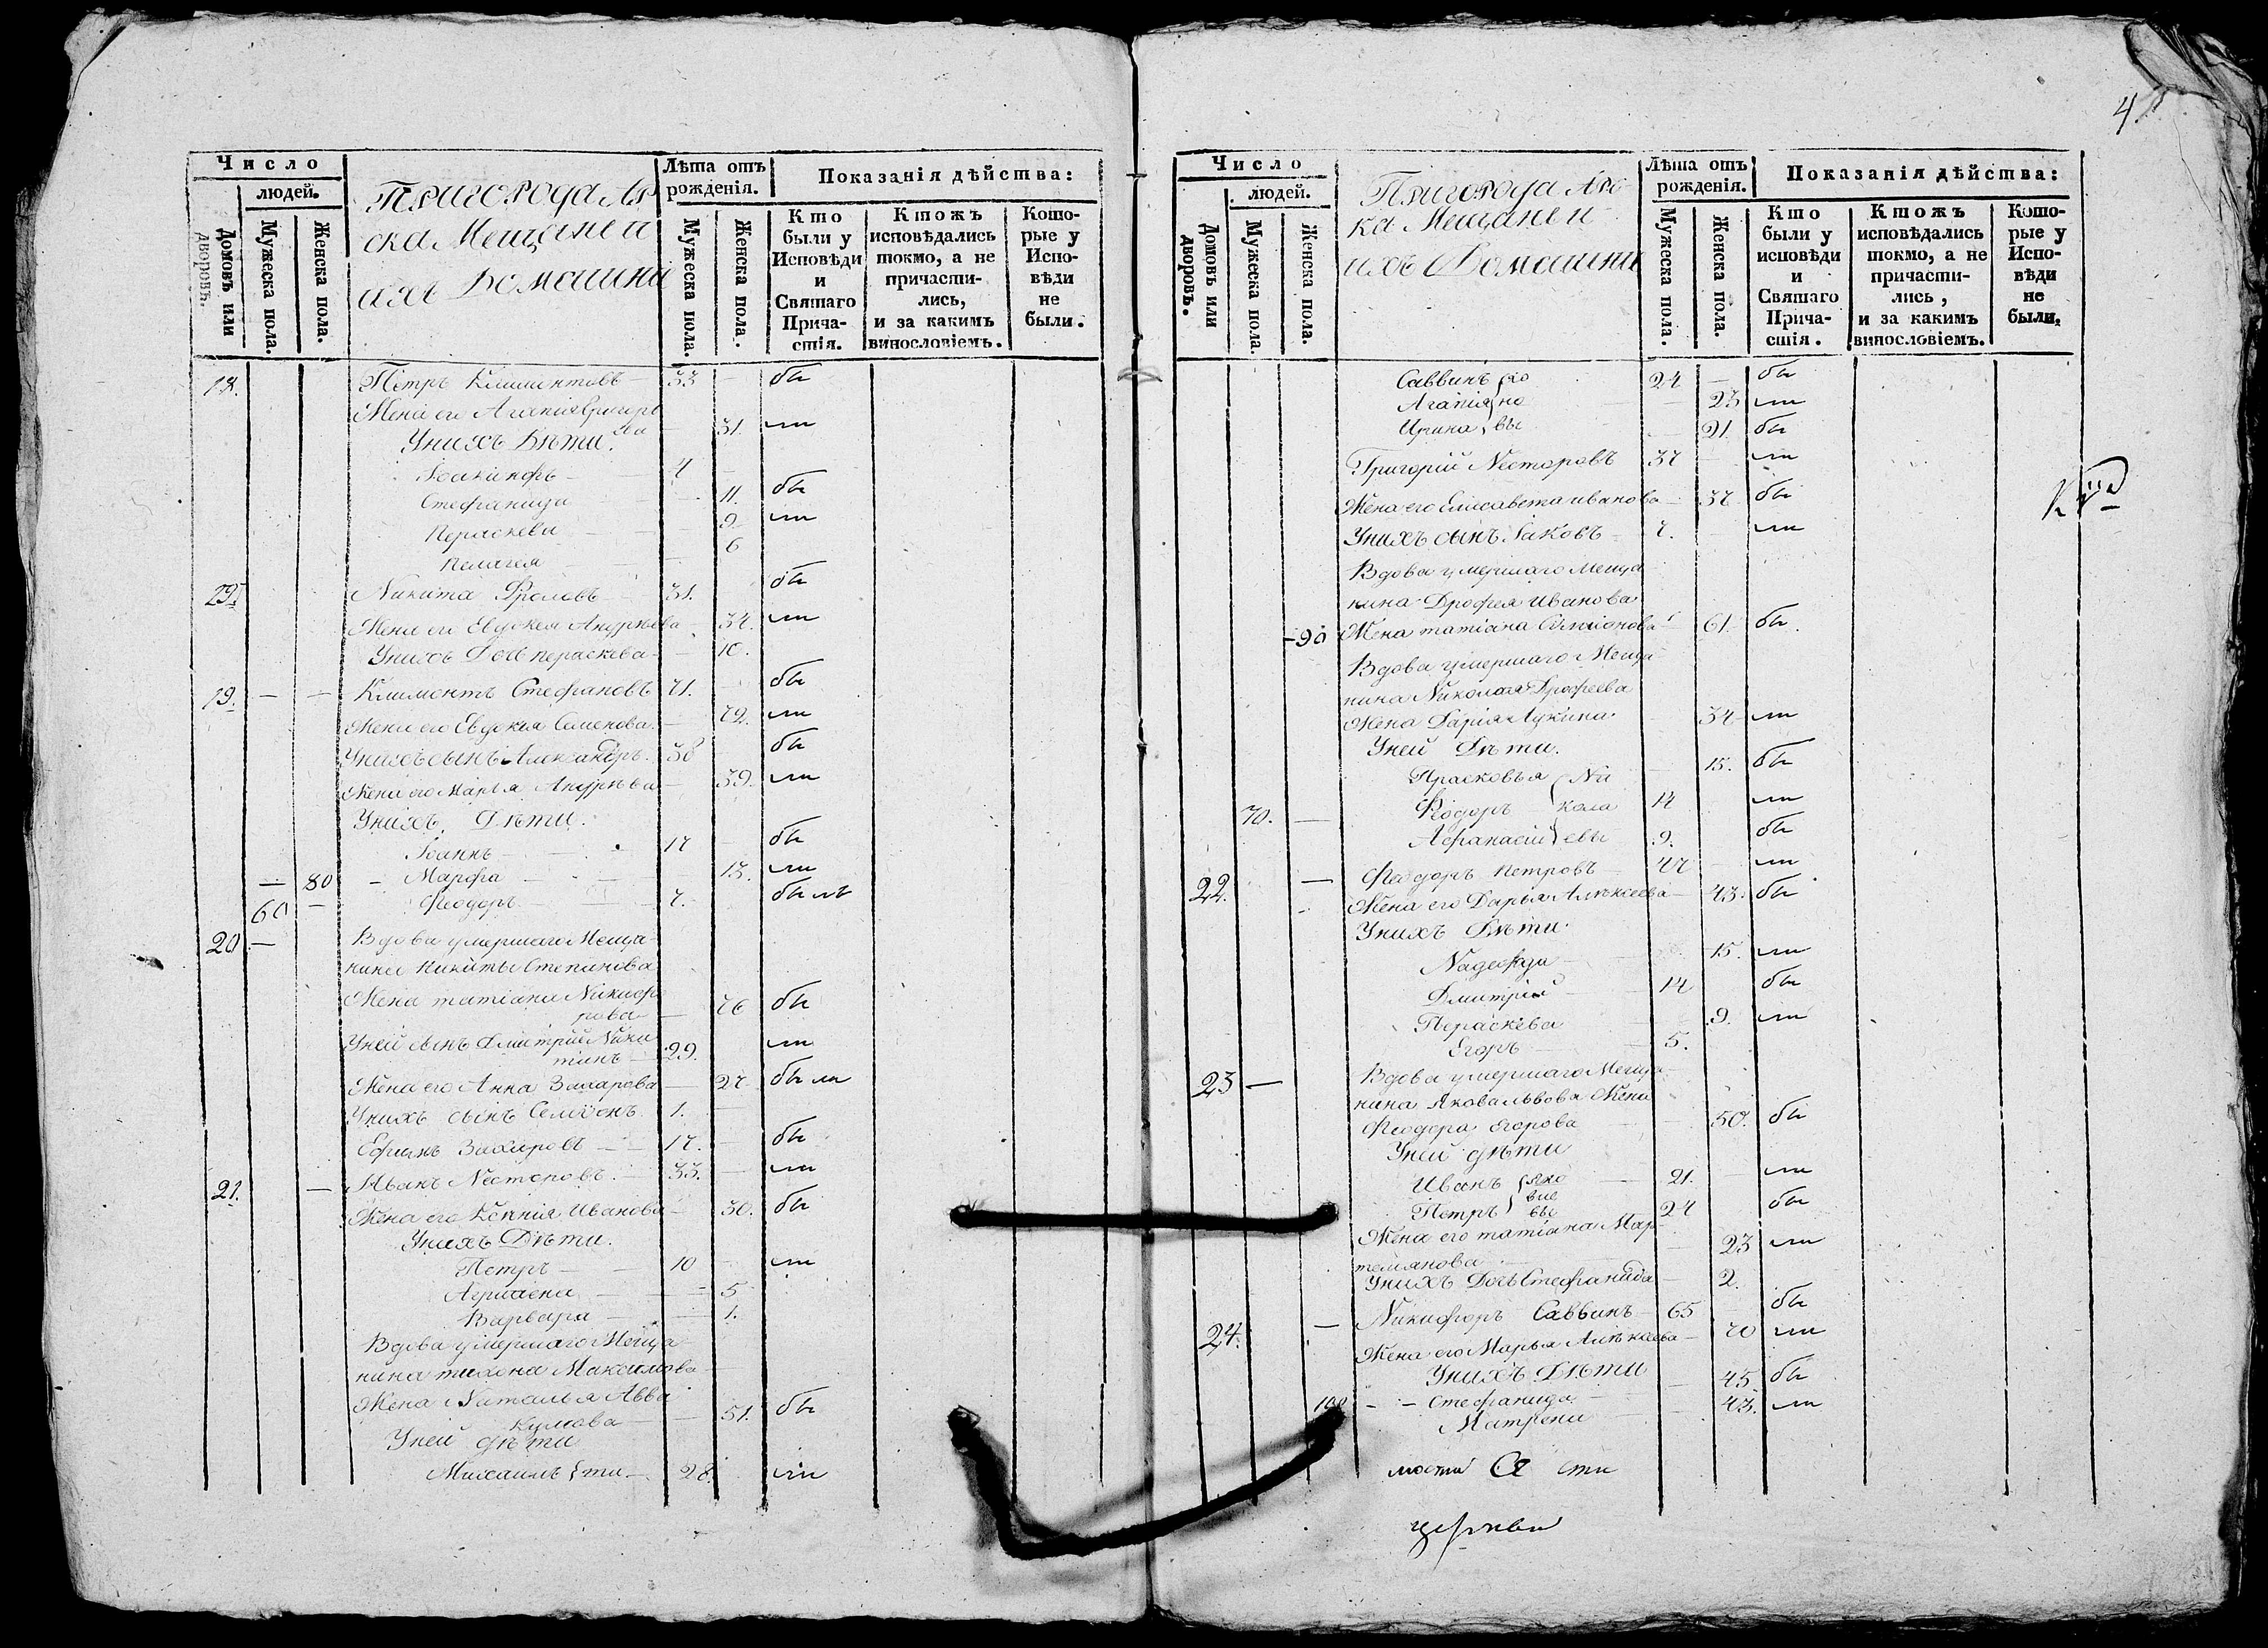 Число
людей.
Домовъ или дворовъ.
Мужеска пола.
Женска пола.
Пригорода Ар
ска Мещане и
ихъ Домашни
Лѣта отъ рожденія.
Мужеска пола.
Женска пола.
Показанія дѣйства:
Кто были у Исповѣди и Святаго Прича-стія.
Ктожъ исповѣдались токмо, а не причасти-лись, и за какимъ винословіемъ.
Кото-рые у Испо-вѣди не были.
18. Петръ Климентовъ 33 — бы
Жена его Агапія Григорь
ева 31. ли
У нихъ Дѣти.
Іоакинфъ 4 —
Стефанида 11. бы
Пераскева 9 ли
Пелагея 6
Никита Фроловъ 31. бы
Жена его Евдокея Андрѣева 34. ли
У нихъ Дочь пераскева 10.
19. — — Климонтъ Стефановъ 71. бы
Жена его Евдокея Семенова. 72. ли
У нихъ сынъ Александръ. 38 бы
Жена его Марья Андрѣева 39. ли
У нихъ Дѣти.
Іоаннъ 17 — бы
— 80 — Марфа 13. ли
60 — Феодоръ 7. былъ
20 — Вдова умершаго Меща
нина Никиты Степанова
Жена татіана Никифо
рова 76 бы
У ней сынъ Дмитрій Ники
тинъ 29. ли
Жена его Анна Захарова 27 были
У нихъ сынъ Семіонъ. 1.
Захаровъ 17. бы
21. — Иванъ Несторовъ. 33. — ли
Жена его Ксенія Иванова 30. бы
У нихъ Дѣти.
Петръ 10 ли
Агрипена 5
Варвара 1.
Вдова умершаго Меща
нина тихона Максимова
Жена Наталья Авва
кумова 51. бы
У ней дѣти
Михаилъ ти 28. ли
4.
Число
людей.
Домовъ или дворовъ.
Мужеска пола.
Женска пола.
Пригорода Арс
ка Мещане и
ихъ Домашни
Лѣта отъ рожденія.
Мужеска пола.
Женска пола.
Показанія дѣйства:
Кто были у исповѣди и Святаго Прича-стія.
Ктожъ исповѣдались токмо, а не причасти-лись, и за какимъ винословіемъ.
Кото-рые у Испо-вѣди не были.
Саввинъ хо 24 — бы
Агапія но 23 ли
Ирина вы 21 бы
Григорій Несторовъ 37 ли
Жена его Елисавета иванова 37 бы
У нихъ сынъ Іаковъ 7. ли
Вдова умершаго Меща
нина Дрофея Иванова
90 Жена татіана Симіонова 61 бы.
Вдова умершаго Меща
нина Николая Дрофеева
Жена Дарія Лукина. 34 ли
У ней Дѣти.
Прасковья Ни 15. бы
70. — Феодоръ кола 14 ли
Афанасій евы 9. бы
22. — Феодоръ Петровъ 47 — ли
Жена его Дарья Алексеева 43. бы
У нихъ Дѣти.
Надежда 15. ли
Дмитрій 14 бы
Пераскева 9. ли
Егоръ 5.
23 — Вдова умершаго Меща
нина Якова львова Жена
Феодора Егорова 50. бы
У ней дѣти
Иванъ яко 21. — ли
Петръ вле вы 24 бы
Жена его татіана Мар
темянова 23 ли
У нихъ Дочь Стефанида 2.
24. — Никифоръ Саввинъ 65 бы
Жена его Марья Алексеева 70 ли
У нихъ Дѣти
100 — — Стефанида 45 бы
Матрена 43. ли
церкви